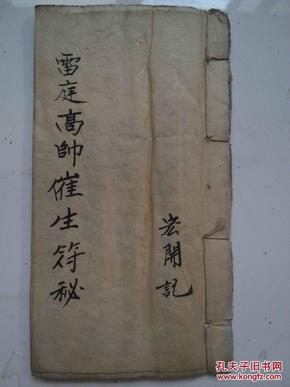 雷庭高帥催生符秘
宏開記
孔夫子旧书网